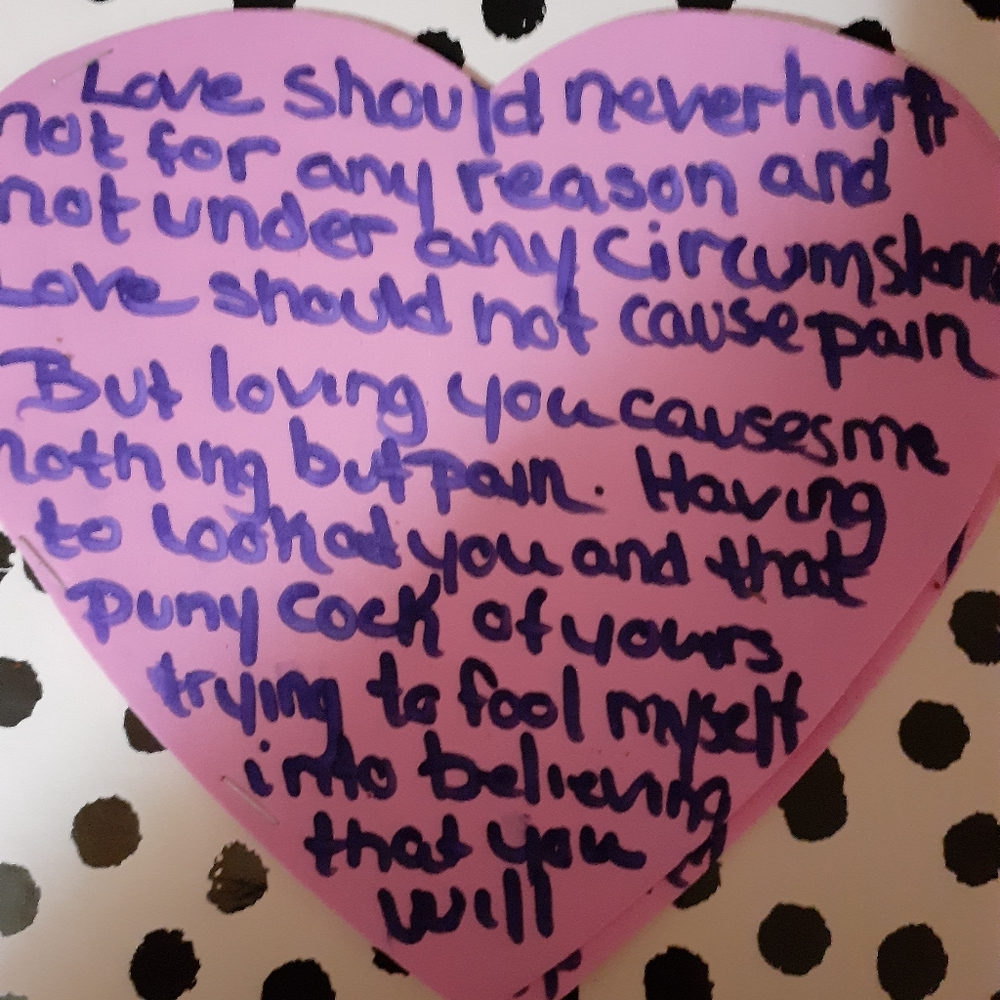 Love should never hurt
not for any reason and
not under any circumstans
Love should not cause pain
But loving you causes me
nothing but pain. Having
to look at you and that
puny cock of yours
trying to fool myself
into believing
that you
will